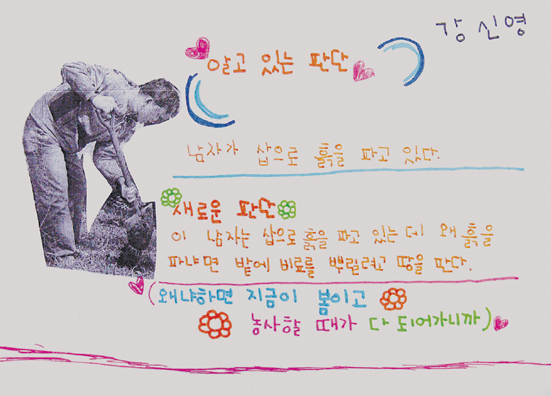 강신영
알고 있는 판단
남자가 삽으로 흙을 파고 있다.
새로운 판단
이 남자는 삽으로 흙을 파고 있는데 왜 흙을
파냐면 밭에 비료를 뿌릴려고 땅을 판다.
(왜냐하면 지금이 봄이고
농사할 때가 다 되어가니까)